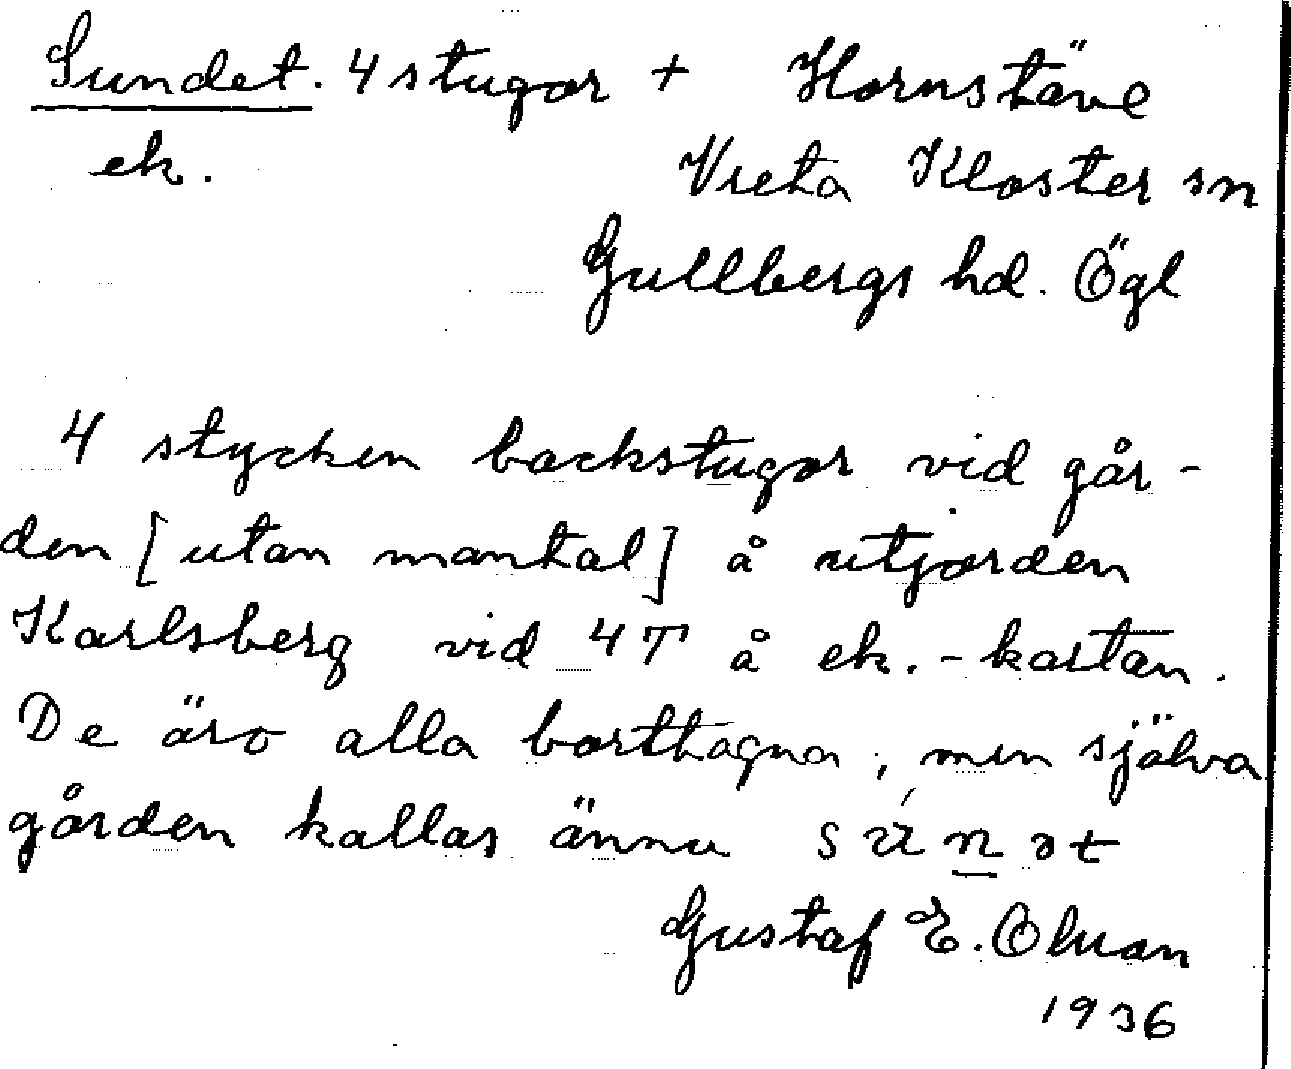 Sundet. 4 stugor + Hornstäve
ek. Vreta Kloster sn
Gullbergs hd. Ögl
4 stycken backstugor vid går-
den [utan mantal] å utjorden
Karlsberg vid 4T å ek.-kartan.
De äro alla borttagna, men själva
gården kallas ännu
Gustaf E. Olsson
1936